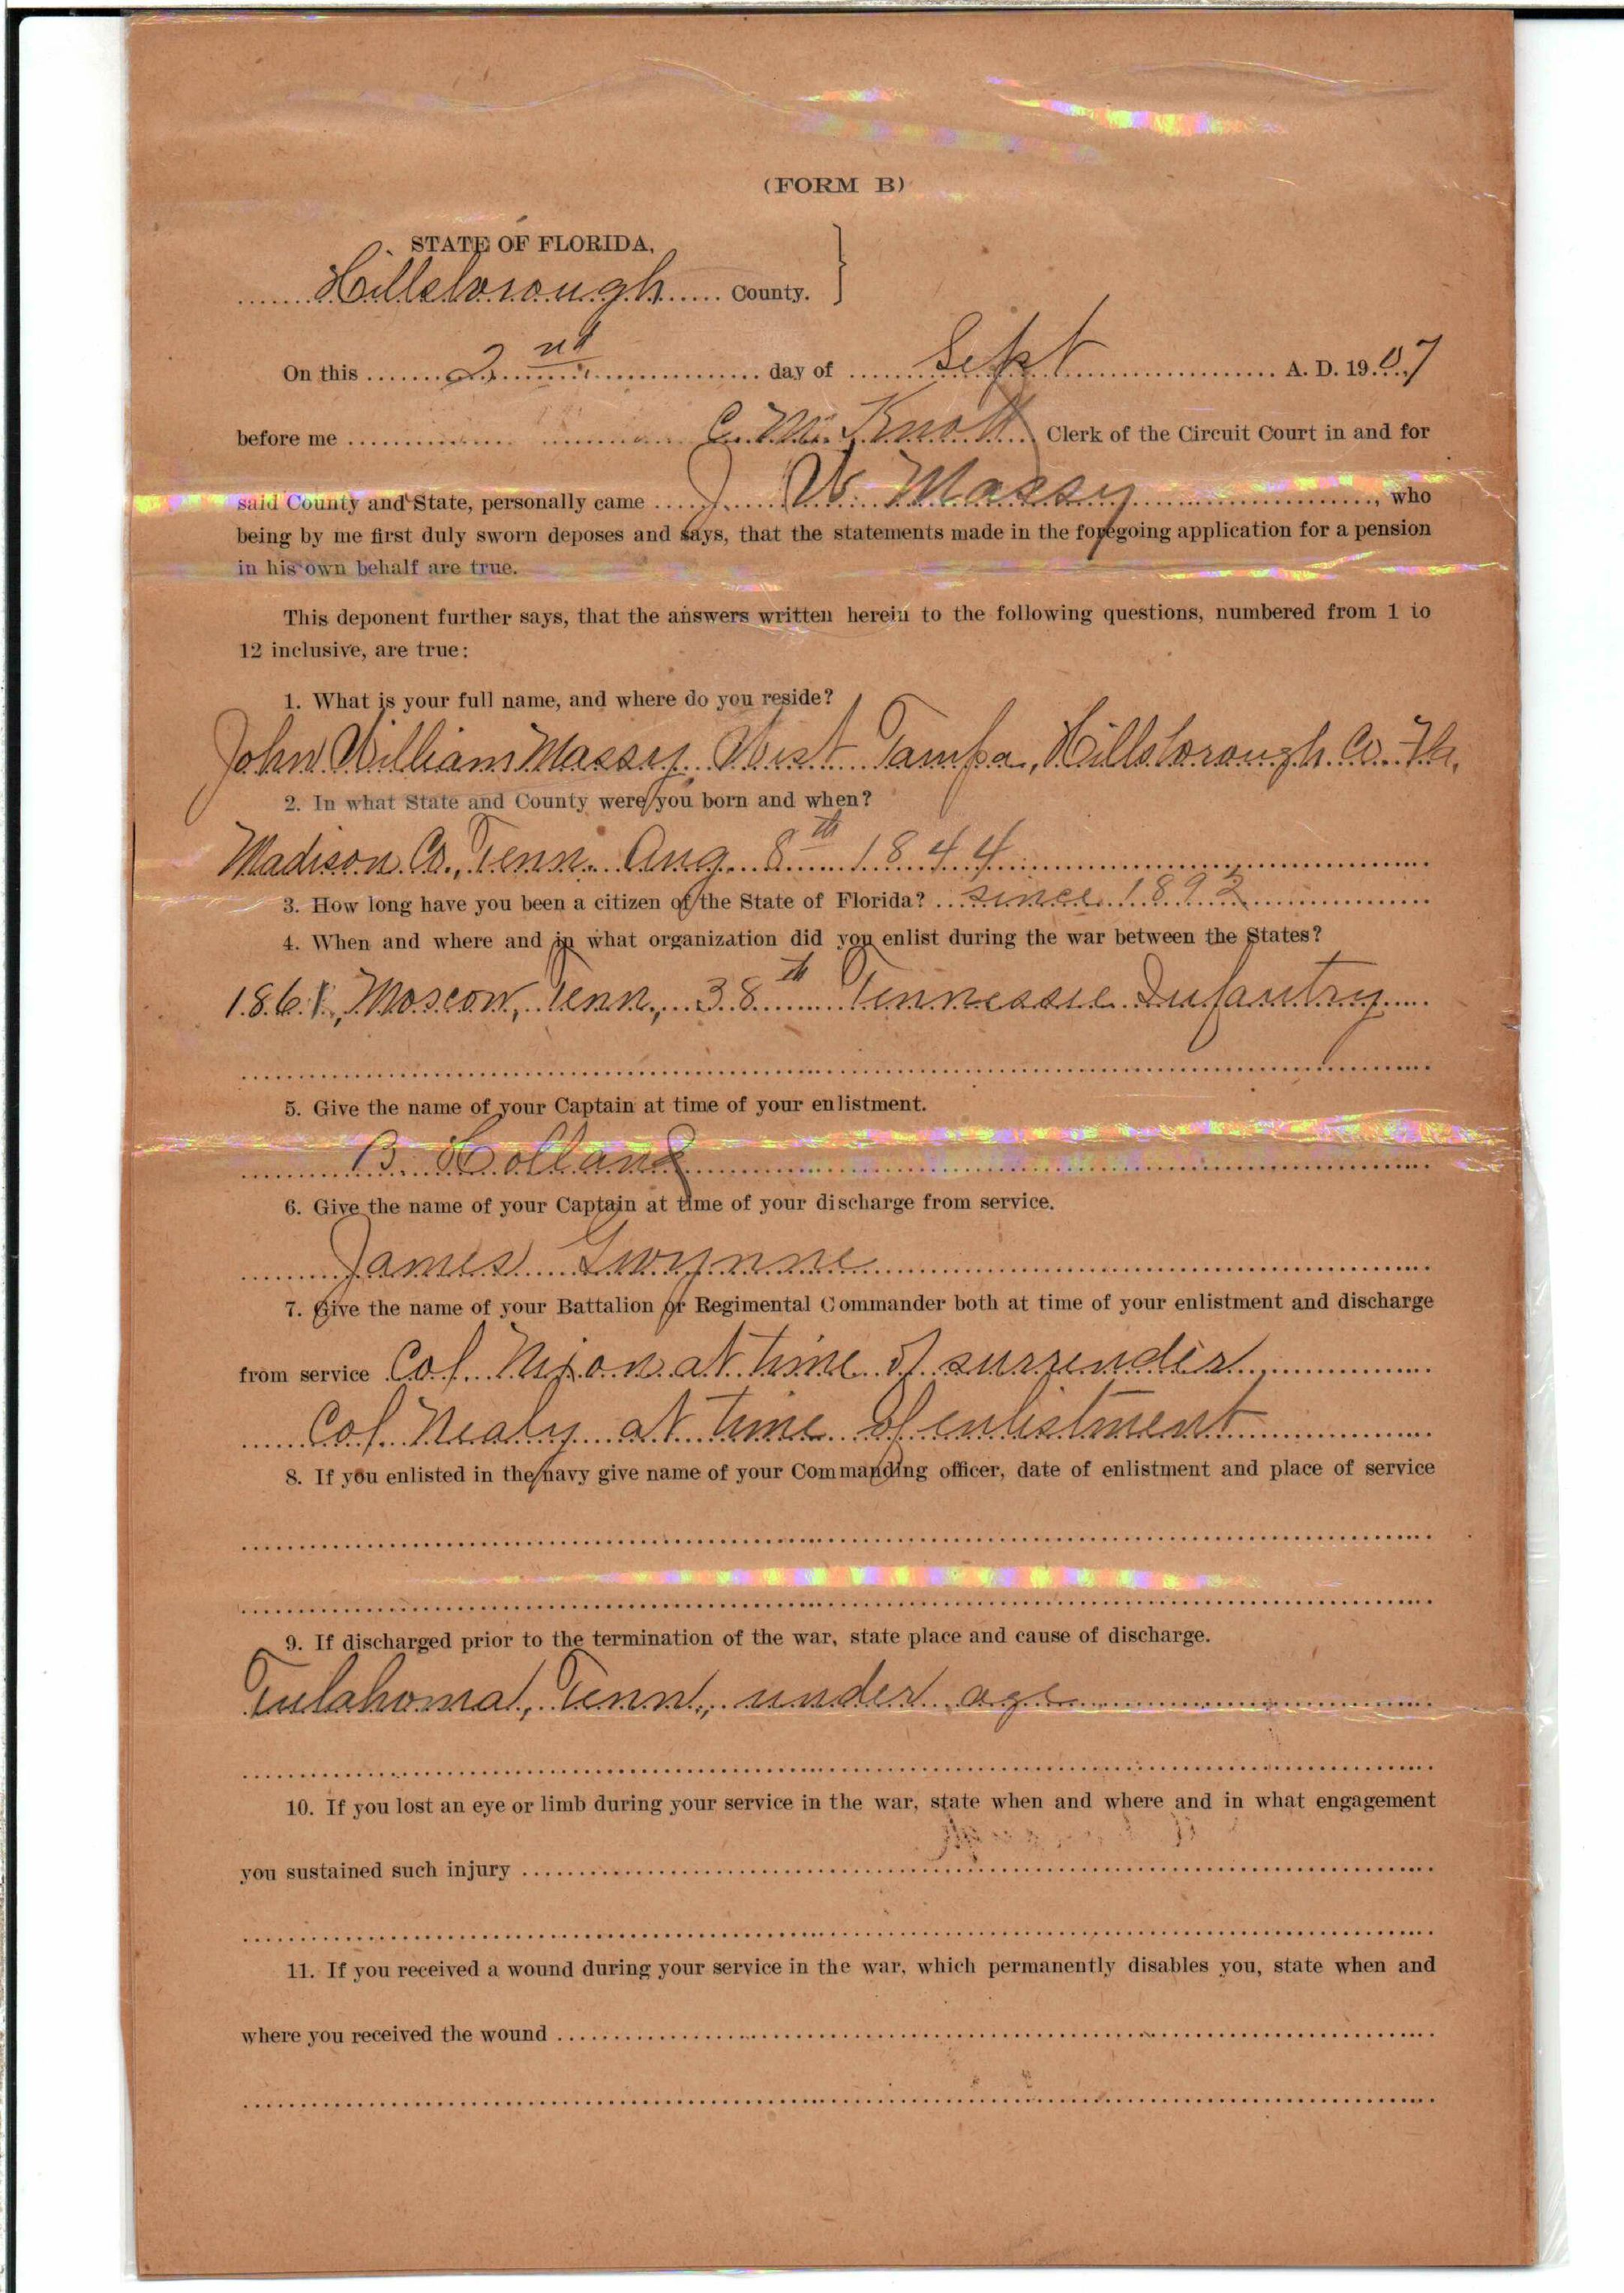 (FORM B)
STATE OF FLORIDA,
Hillsborough County.
On this 2nd day of Sept A. D. 1907
before me C. M. Knott Clerk of the Circuit Court in and for
said County and State, personally came J. W. Massey, who
being by me first duly sworn deposes and says, that the statements made in the foregoing application for a pension
in his own behalf are true.
This deponent further says, that the answers written herein to the following questions, numbered from 1 to
12 inclusive, are true:
1. What is your full name, and where do you reside?
John William Massey, West Tampa, Hillsborough Co. Fla.
2. In what State and County were you born and when?
Madison Co., Tenn. Aug. 8th 1844
3. How long have you been a citizen of the State of Florida? since 1892
4. When and where and in what organization did you enlist during the war between the States?
1861, Moscow, Tenn, 38th Tennessee Infantry
5. Give the name of your Captain at time of your enlistment.
B. Holland
6. Give the name of your Captain at time of your discharge from service.
James Gwynne
7. Give the name of your Battalion or Regimental Commander both at time of your enlistment and discharge
from service Col. Nixon at time of surrender
Col. Nealy at time of enlistment
8. If you enlisted in the navy give name of your Commanding officer, date of enlistment and place of service
9. If discharged prior to the termination of the war, state place and cause of discharge.
Tulahoma, Tenn, under age
10. If you lost an eye or limb during your service in the war, state when and where and in what engagement
you sustained such injury
11. If you received a wound during your service in the war, which permanently disables you, state when and
where you received the wound